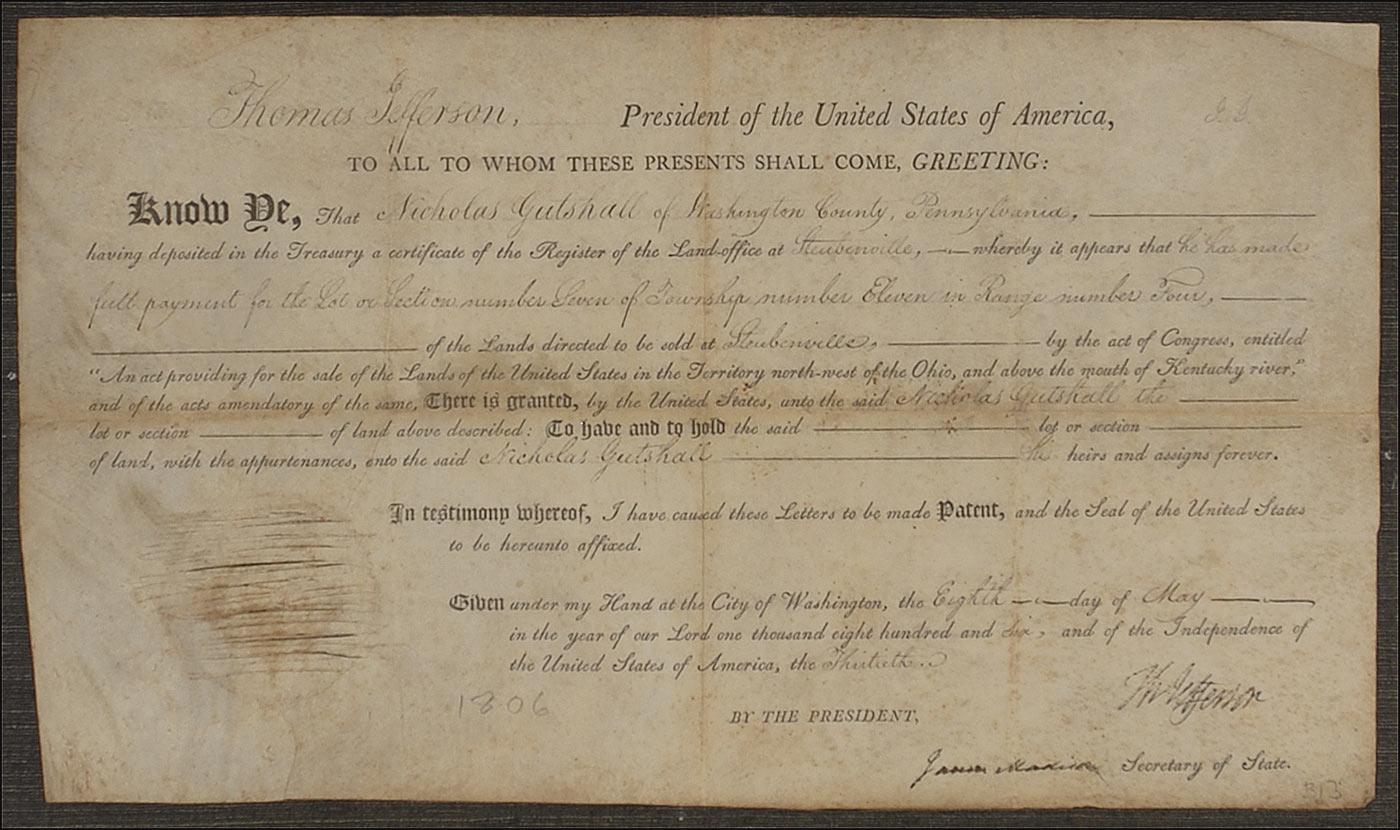 Thomas Jefferson, President of the United States of America,
TO ALL TO WHOM THESE PRESENTS SHALL COME, GREETING:
Know Ye, That Nicholas Gutshall of Washington County, Pennsylvania,
having deposited in the Treasury a certificate of the Register of the Land-office at Steubenville, whereby it appears that he has made
full payment for the Lot or Section number Seven of Township number Eleven in Range number Four,
of the Lands directed to be sold at Steubenville, by the act of Congress, entitled
"An act providing for the sale of the Lands of the United States in the Territory north-west of the Ohio, and above the mouth of Kentucky river,"
and of the acts amendatory of the same, There is granted, by the United States, unto the said Nicholas Gutshall the
lot or section of land above described: To have and to hold the said lot or section
of land, with the appurtenances, unto the said Nicholas Gutshall his heirs and assigns forever.
In testimony whereof, I have caused these Letters to be made Patent, and the Seal of the United States
to be hereunto affixed.
Given under my Hand at the City of Washington, the Eighth day of May
in the year of our Lord one thousand eight hundred and six, and of the Independence of
the United States of America, the Thirtieth.
Th Jefferson
1806
BY THE PRESIDENT,
James Madison Secretary of State.
313